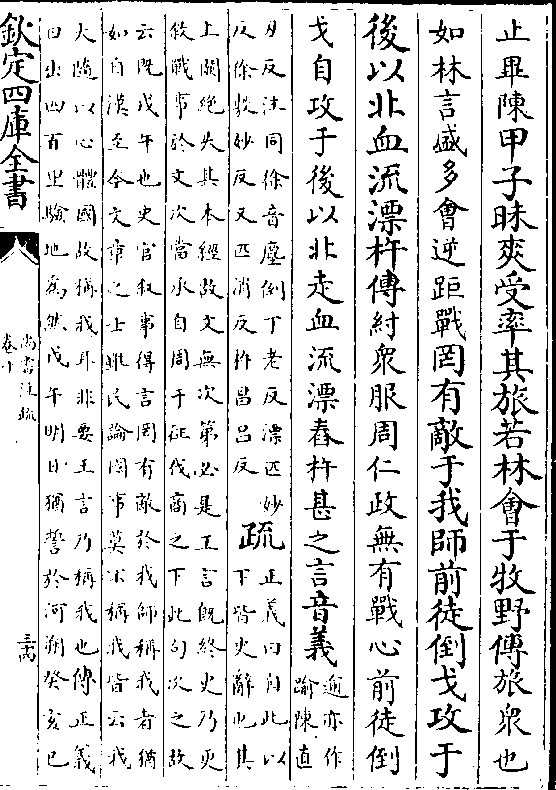 止畢陳甲子昧爽受率其旅若林會于牧野傳旅衆也
如林言盛多會逆距戰罔有敵于我師前徒倒戈攻于
後以北血流漂杵傳紂衆服周仁政無有戰心前徒倒
戈自攻于後以北走血流漂舂杵甚之言音義逾亦作
踰陳直
刃反注同徐音塵倒丁老反漂匹妙
反徐敷妙反又匹消反杵昌吕反
疏正義曰自此以
下皆史辭也其
上闕絶失其本經故文無次第必是王言既終史乃更
敘戰事於文次當承自周于征伐商之下此句次之故
云既戊午也史官叙事得言罔有敵於我師稱我者猶
如自漢至今文章之士雖民論國事莫不稱我皆云我
大隨以心體國故稱我耳非要王言乃稱我也傳正義
曰出四百里驗地爲然戊午明日猶誓於河朔癸亥已
欽定四庫全書
尚書注疏
卷十